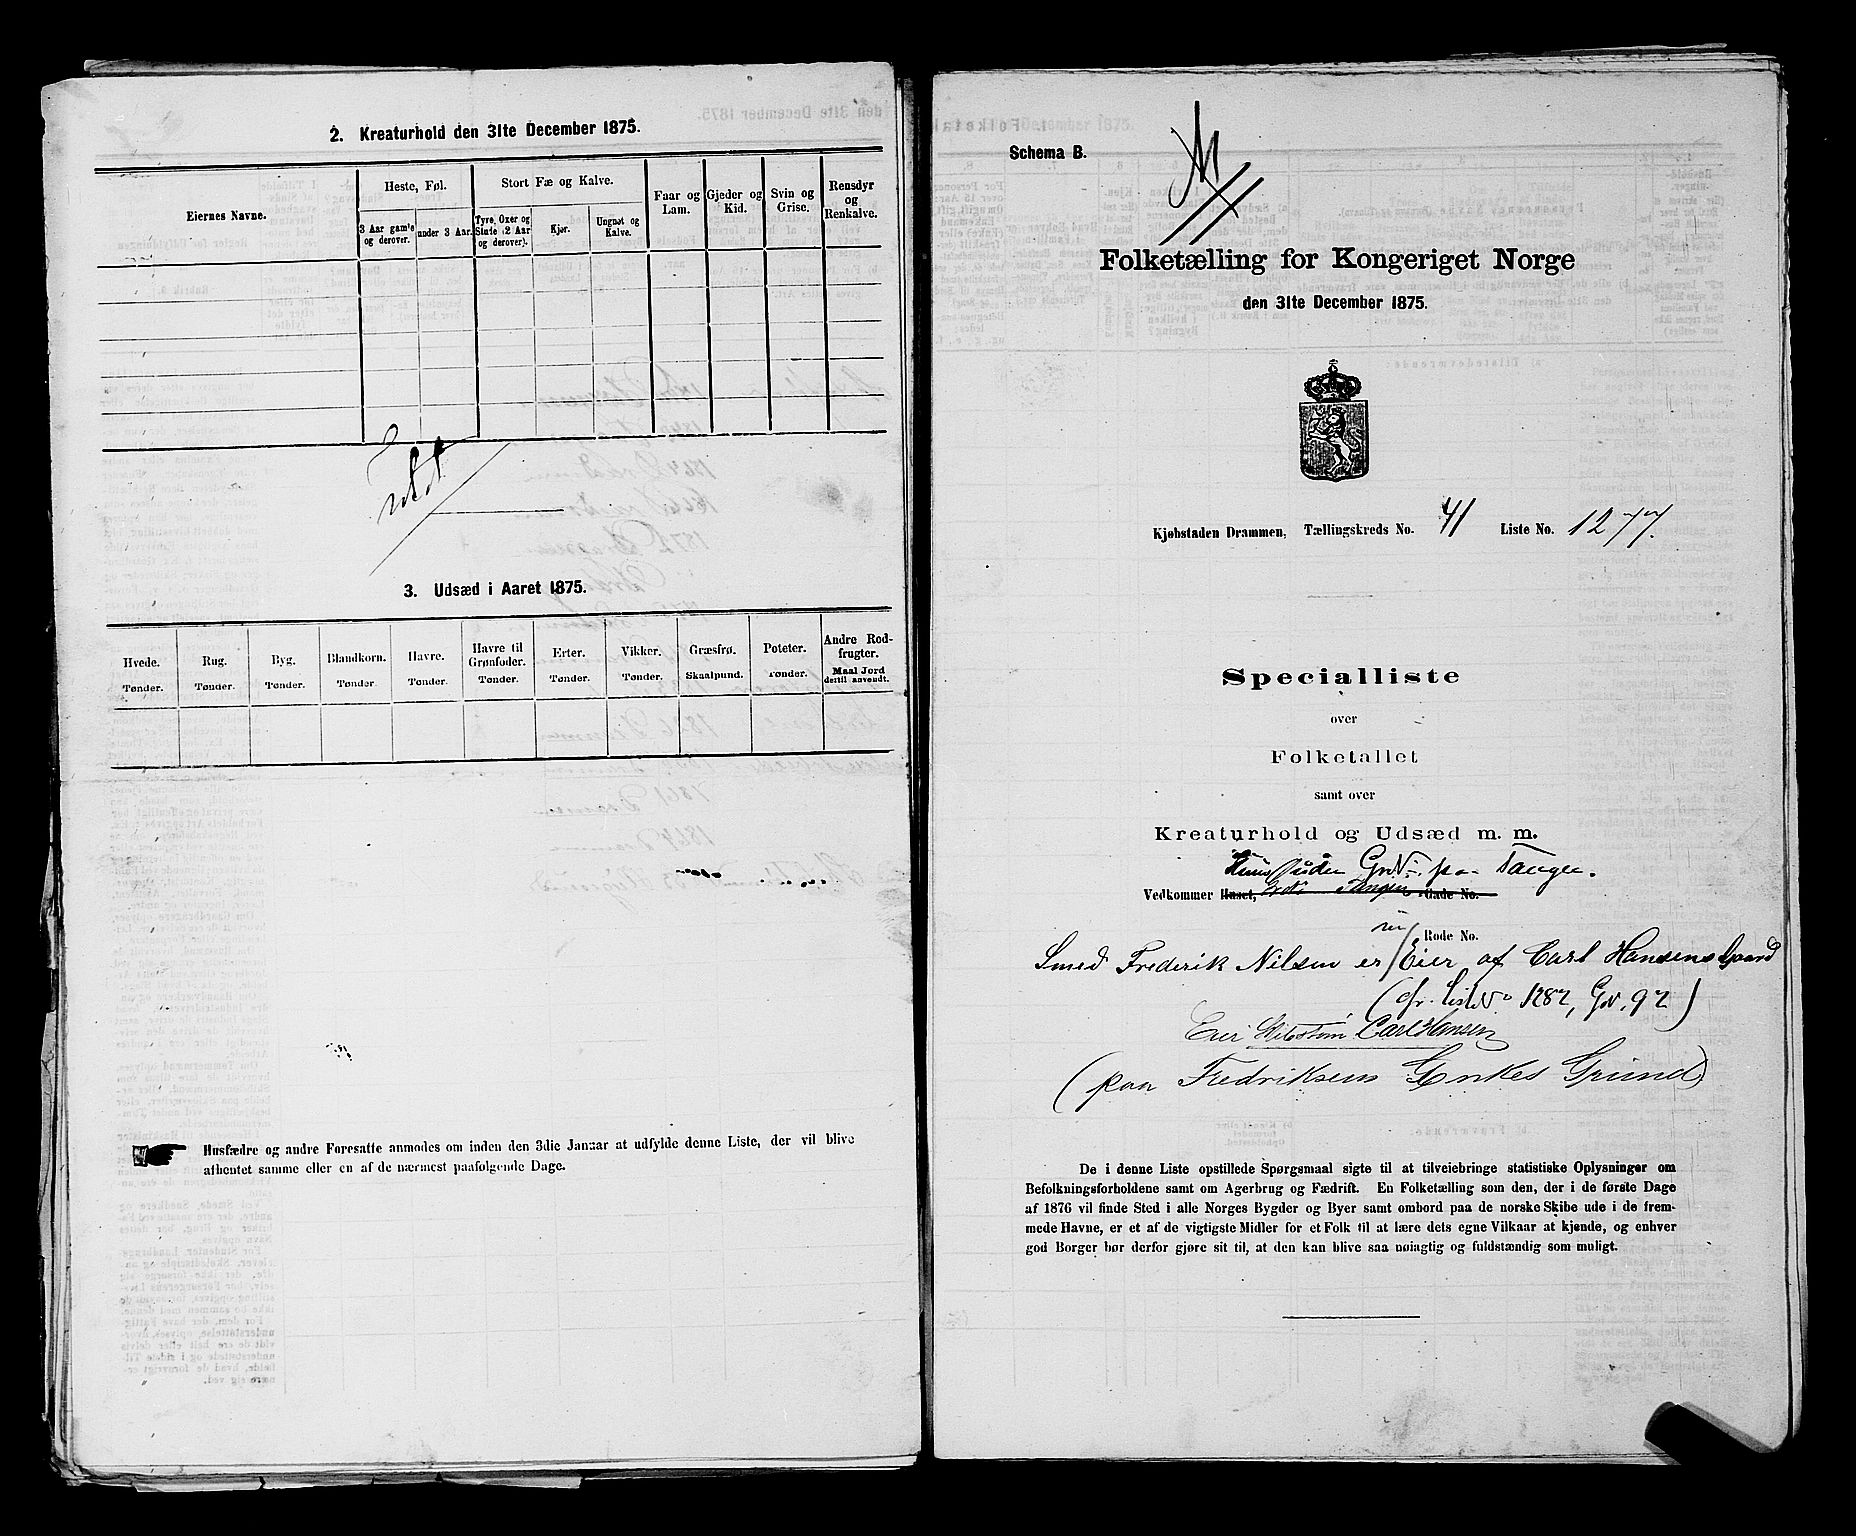 2. Kreaturhold den 31te December 1875.
Eiernes Navne.
Heste, Føl.
Stort Fæ og Kalve.
Faar og Lam.
Gjeder og Kid.
Svin og Grise.
Rensdyr og Renkalve.
3 Aar gamle og derover.
under 3 Aar.
Tyre, Oxer og Stute (2 Aar og derover).
Kjør.
Ungnøt og Kalve.
3. Udsæd i Aaret 1875.
Hvede. Tønder.
Rug. Tønder.
Byg. Tønder.
Blandkorn. Tønder.
Havre. Tønder.
Havre til Grønfoder. Tønder.
Erter. Tønder.
Vikker. Tønder.
Græsfrø. Skaalpund.
Poteter. Tønder.
Andre Rodfrugter. Maal Jord dertil anvendt.
Husfædre og andre Foresatte anmodes om inden den 3die Januar at udfylde denne Liste, der vil blive
afhentet samme eller en af de nærmest paafølgende Dage.
Schema B.
Folketælling for Kongeriget Norge
den 31te December 1875.
Kjøbstaden Drammen, Tællingskreds No. 41 Liste No. 1277.
Specialliste
over
Folketallet
samt over
Kreaturhold og Udsæd m. m.
Huus uden GrNo paa Tangen.
Vedkommer Huset, Tangen Gade No.
nu Rode No.
Smed Frederik Nilsen er Eier af Carl Hansens Gaard
(cfr. Liste No 1282, GN. 92)
Eier Carl Hansen
(paa Fredriksens Enkes Grund)
De i denne Liste opstillede Spørgsmaal sigte til at tilveiebringe statistiske Oplysninger om
Befolkningsforholdene samt om Agerbrug og Fædrift. En Folketælling som den, der i de første Dage
af 1876 vil finde Sted i alle Norges Bygder og Byer samt ombord paa de norske Skibe ude i de frem-
mede Havne, er et af de vigtigste Midler for et Folk til at lære dets egne Vilkaar at kjende, og enhver
god Borger bør derfor gjøre sit til, at den kan blive saa nøiagtig og fuldstændig som muligt.